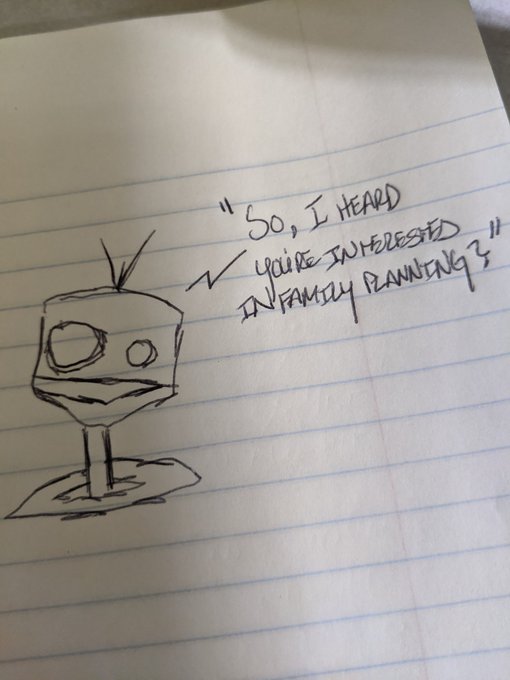 "So, I HEARD
YOU'RE INTERESTED
IN FAMILY PLANNING?"